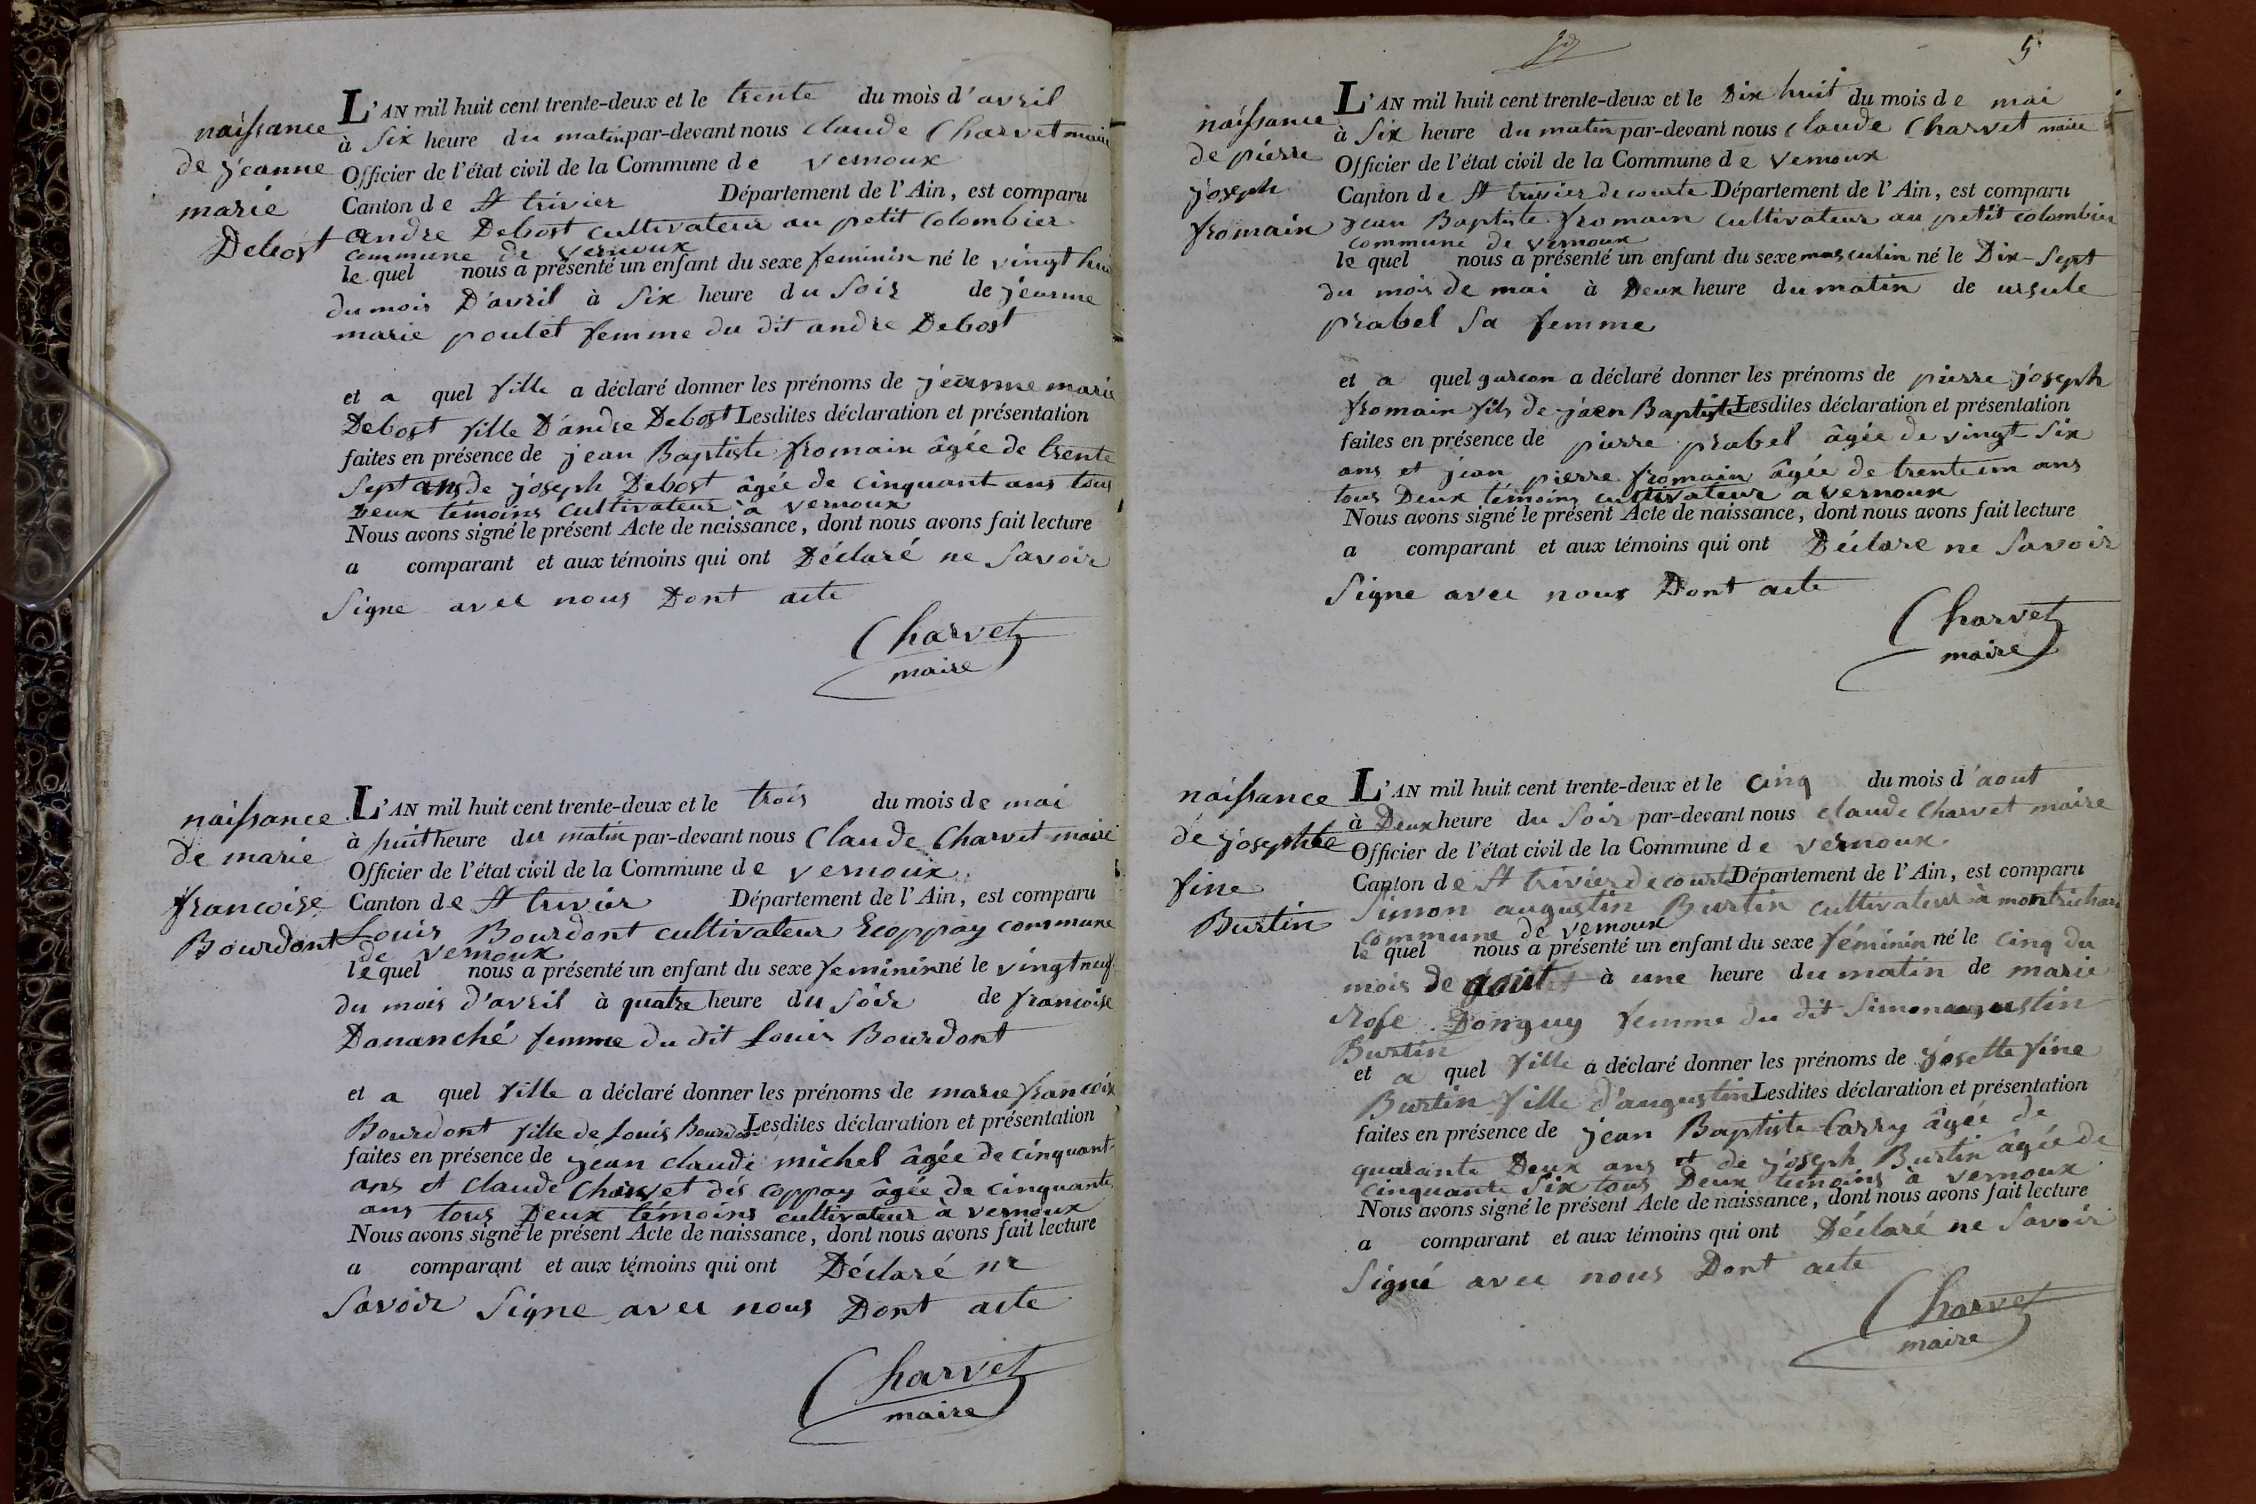 naissance
de jeanne
marie
Debost
L'AN mil huit cent trente-deux et le trente du mois d'avril
à Six heure du matin par-devant nous Claude Charvet maire
Officier de l'état civil de la Commune de vernoux
Canton de St trivier Département de l'Ain, est comparu
andre Debost cultivateur au petit Colombier
commune de vernoux
le quel nous a présenté un enfant du sexe feminin né le vingt huit
du mois D'avril à Six heure du Soir de jeanne
marie poulet femme du dit andre Debost
et a quel fille a déclaré donner les prénoms de jeanne marie
Debost fille D'andre Debost Lesdites déclaration et présentation
faites en présence de jean Baptiste fromain âgée de trente
Sept ans de joseph Debost âgée de cinquant ans tous
Deux témoins cultivateur à vernoux
Nous avons signé le présent Acte de naissance, dont nous avons fait lecture
a comparant et aux témoins qui ont Déclaré ne Savoir
Signe avec nous Dont acte
Charvet
maire
naissance
de marie
francoise
Bourdont
L'AN mil huit cent trente-deux et le trois du mois de mai
à huit heure du matin par-devant nous Claude Charvet maire
Officier de l'état civil de la Commune de vernoux
Canton de St trivier Département de l'Ain, est comparu
Louis Bourdont cultivateur Ecoppay commune
de vernoux
le quel nous a présenté un enfant du sexe feminin né le vingt neuf
du mois d'avril à quatre heure du Soir de francoise
Dananché femme du dit Louis Bourdont
et a quel fille a déclaré donner les prénoms de marie francoix
Bourdont fille de Louis Bourdon Lesdites déclaration et présentation
faites en présence de jean claude michel âgée de cinquant
ans et claude Charvet dés coppay âgée de cinquante
ans tous Deux témoins cultivateur à vernoux
Nous avons signé le présent Acte de naissance, dont nous avons fait lecture
a comparant et aux témoins qui ont Déclaré ne
Savoir Signe avec nous Dont acte
Charvet
maire
5
naissance
de pierre
joseph
fromain
L'AN mil huit cent trente-deux et le Dix huit du mois de mai
à Six heure du matin par-devant nous claude Charvet maire
Officier de l'état civil de la Commune de vernoux
Canton de St trivier de courte Département de l'Ain, est comparu
jean Baptiste fromain cultivateur au petit colombier
commune de vernoux
le quel nous a présenté un enfant du sexe masculin né le Dix-Sept
du mois de mai à Deux heure du matin de ursule
prabel Sa femme
et a quel garcon a déclaré donner les prénoms de pierre joseph
fromain fils de jaen Baptiste Lesdites déclaration et présentation
faites en présence de pierre prabel âgée de vingt Six
ans et jean pierre fromain âgée de trente un ans
tous Deux témoins cultivateur a vernoux
Nous avons signé le présent Acte de naissance, dont nous avons fait lecture
a comparant et aux témoins qui ont Déclare ne Savoir
Signe avec nous Dont acte
Charvet
maire
naissance
de josephte
fine
Burtin
L'AN mil huit cent trente-deux et le cinq du mois d'aout
à Deux heure du Soir par-devant nous claude Charvet maire
Officier de l'état civil de la Commune de vernoux
Canton de St trivier de courte Département de l'Ain, est comparu
Simon augustin Burtin cultivateur à montrichard
commune de vernoux
le quel nous a présenté un enfant du sexe féminin né le cinq du
mois de aout à une heure du matin de marie
Rose Donguy femme du dit Simon augustin
Burtin
et a quel fille a déclaré donner les prénoms de josette fine
Burtin fille d'augustin Lesdites déclaration et présentation
faites en présence de jean Baptiste Carry âgée de
quarante Deux ans et de joseph Burtin âgée de
cinquante Six tous Deux témoins à vernoux
Nous avons signé le présent Acte de naissance, dont nous avons fait lecture
a comparant et aux témoins qui ont Déclaré ne Savoir
Signé avec nous Dont acte
Charvet
maire